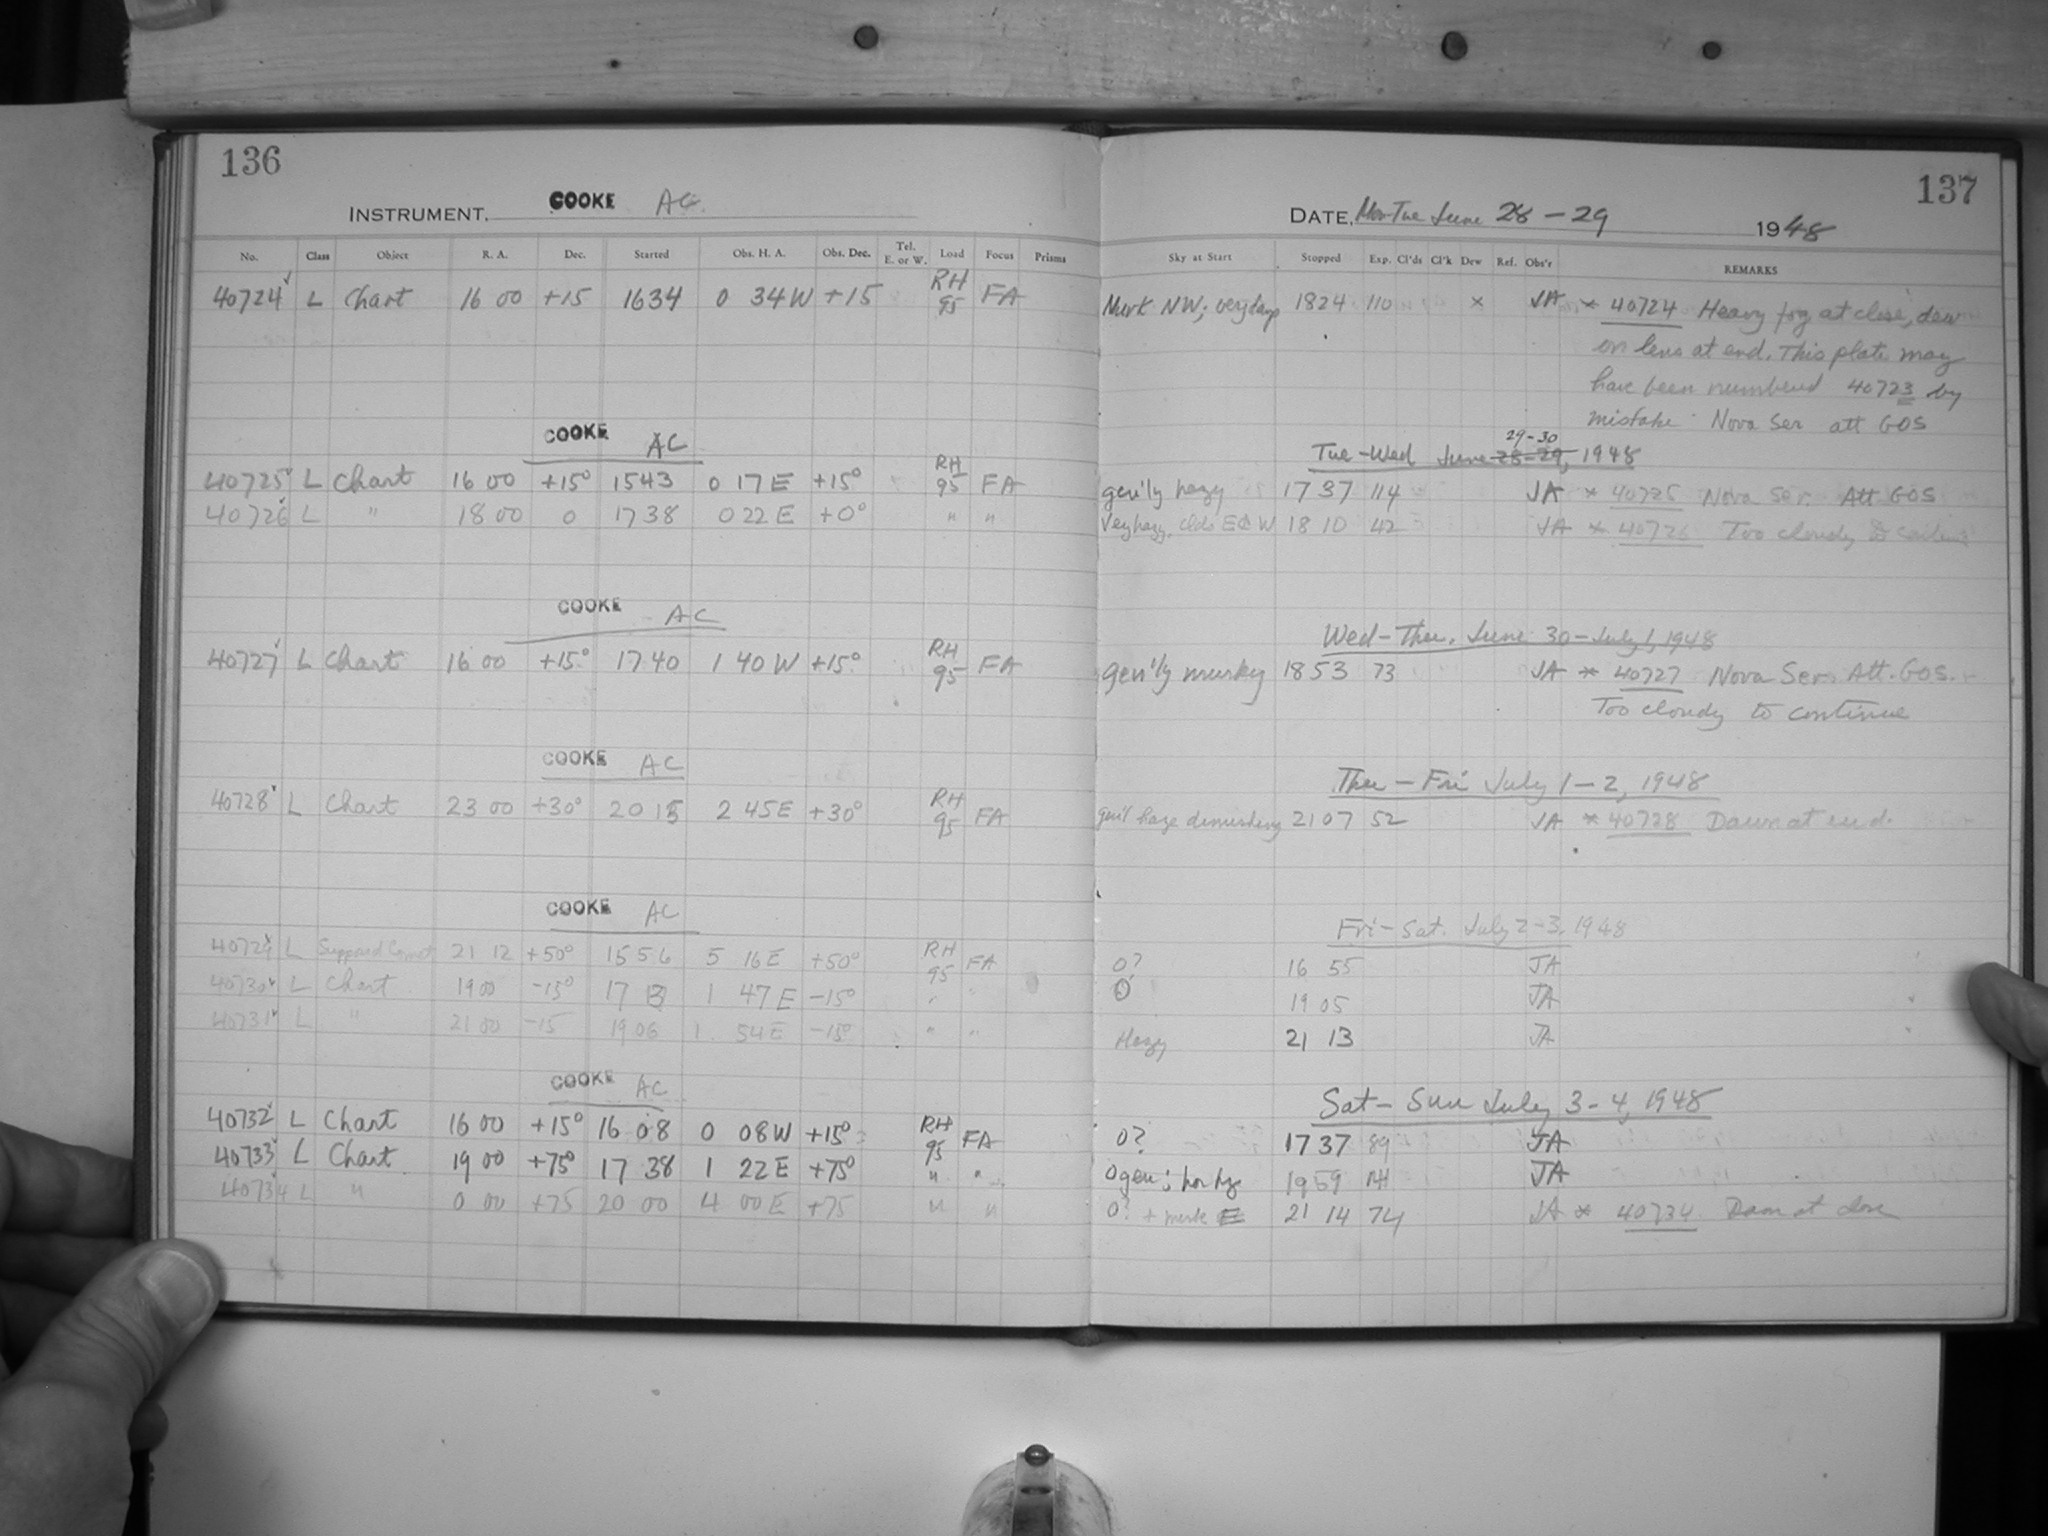 136
INSTRUMENT, COOKE AC.
No. Class Object R. A. Dec. Started Obs. H. A. Obs. Dec. Tel. E. or W. Load Focus Prisms
40724 L Chart 16 00 +15 1634 0 34 W +15 RH 95 FA
COOKE AC
40725 L Chart 16 00 +15° 1543 0 17 E +15° RH 95 FA
40726 L " 18 00 0 1738 0 22 E +0° " "
COOKE AC
40727 L Chart 16 00 +15° 1740 1 40 W +15° RH 95 FA
COOKE AC
40728 L Chart 23 00 +30° 20 15 2 45 E +30° RH 95 FA
COOKE AC
40729 L 21 12 +50° 15 56 5 16 E +50° RH 95 FA
40730 L Chart 19 00 -15° 17 1 47 E -15° " "
40731 L " 21 00 -15 19 06 1 54 E -15° " "
COOKE AC
40732 L Chart 16 00 +15° 16 08 0 08 W +15° RH 95 FA
40733 L Chart 19 00 +75° 17 38 1 22 E +75° " "
40734 L " 0 00 +75 20 00 4 00 E +75 " "
137
DATE, Mon-Tue June 28-29 1948
Sky at Start Stopped Exp. Cl'ds Cl'k Dew Ref. Obs'r REMARKS
Murk NW; very damp 1824 110 x JA * 40724 Heavy fog at close, dew
on lens at end. This plate may
have been numbered 40723 by
mistake. Nova Ser att GOS
29-30
Tue-Wed June 28-29, 1948
gen'ly hazy 1737 114 JA * 40725 Nova Ser. Att GOS
Very hazy, clds E & W 18 10 42 JA * 40726 Too cloudy to
Wed-Thu. June 30-July 1, 1948
gen'ly murky 1853 73 JA * 40727 Nova Ser. Att. GOS.
Too cloudy to continue
Thu-Fri July 1-2, 1948
gen'l haze 2107 52 JA * 40728 Dawn at end.
Fri-Sat. July 2-3, 1948
0? 16 55 JA
0 19 05 JA
Hazy 21 13 JA
Sat-Sun July 3-4, 1948
0? 1737 89 JA
0 gen; 1959 141 JA
0? + murk 21 14 74 JA * 40734 Dawn at close